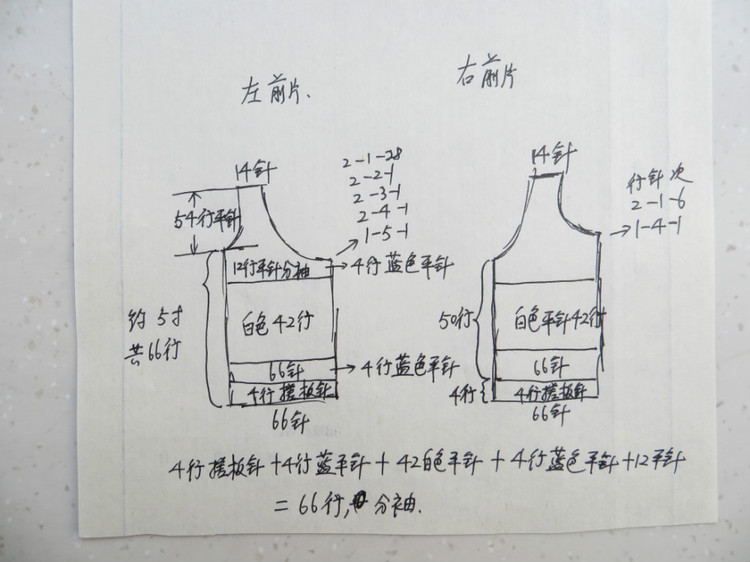 左前片.
右前片
14针
54行平针
2-1-28
2-2-1
2-3-1
2-4-1
1-5-1
12行平针分袖
4行蓝色平针
约5寸
共66行
白色42行
66针
4行蓝色平针
4行搓板针
66针
14针
行针次
2-1-6
1-4-1
50行
白色平针42行
66针
4行
4行搓板针
66针
4行搓板针+4行蓝平针+42白色平针+4行蓝色平针+12平针
=66行,分袖.